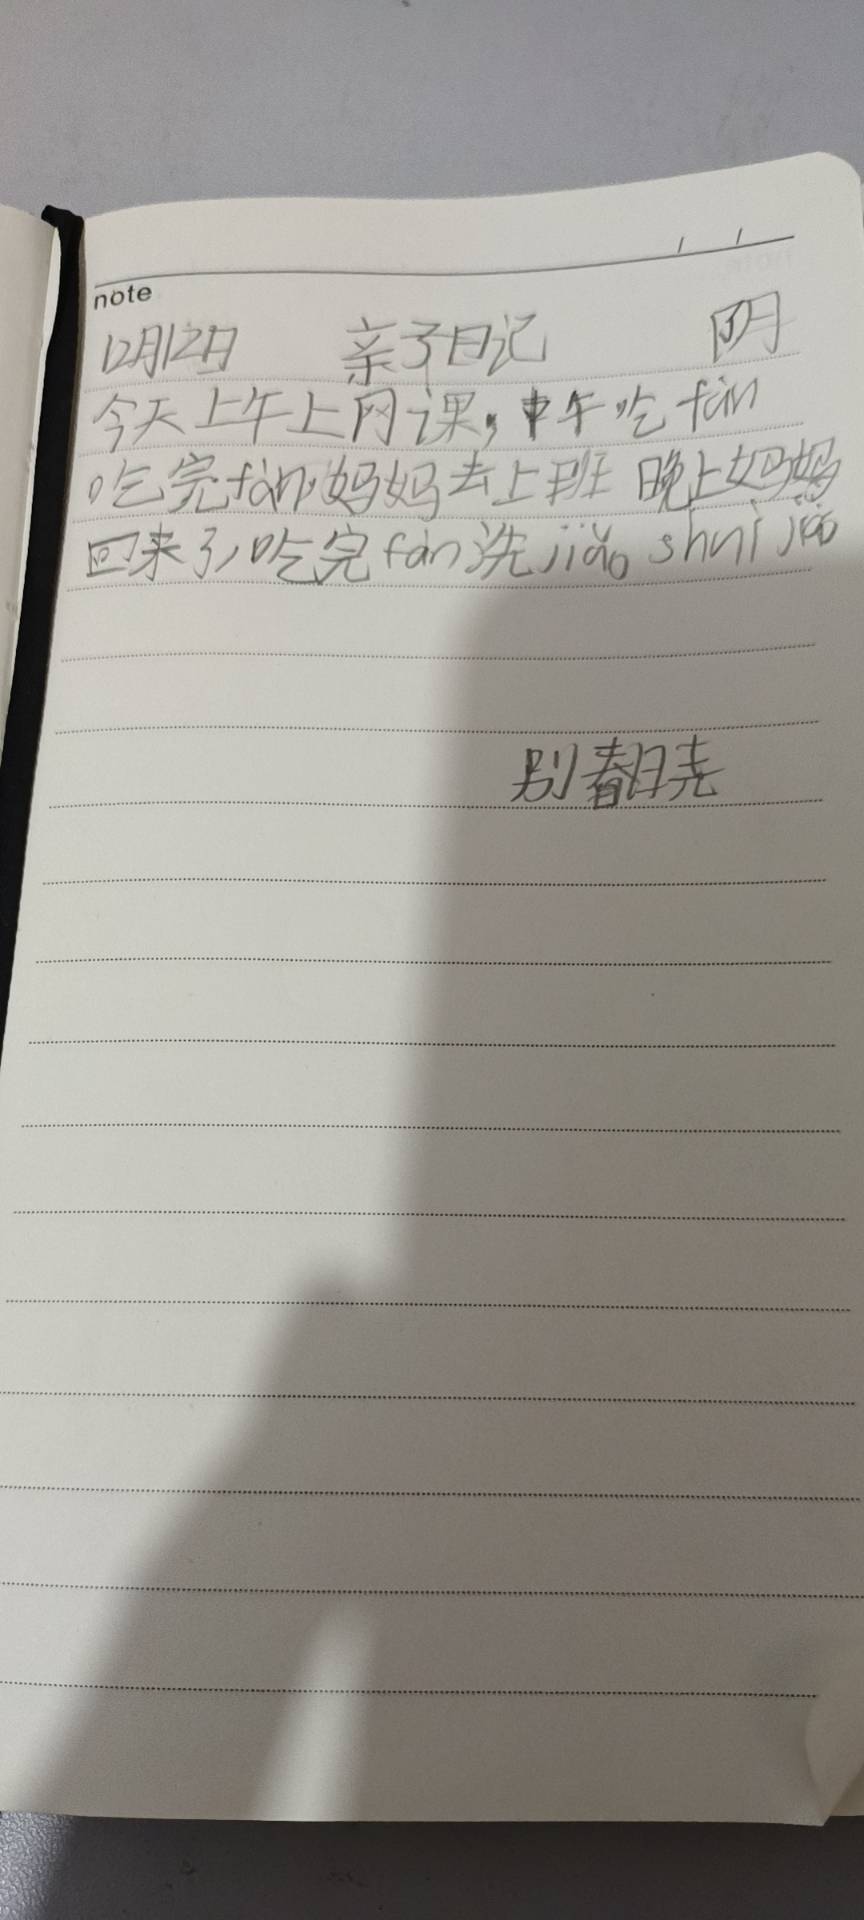 note
12月12日 亲子日记 阴
今天上午上网课，中午吃fàn
吃完fàn，妈妈去上班 晚上妈妈
回来了，吃完fàn洗jiǎo shuì jiào
别春晓